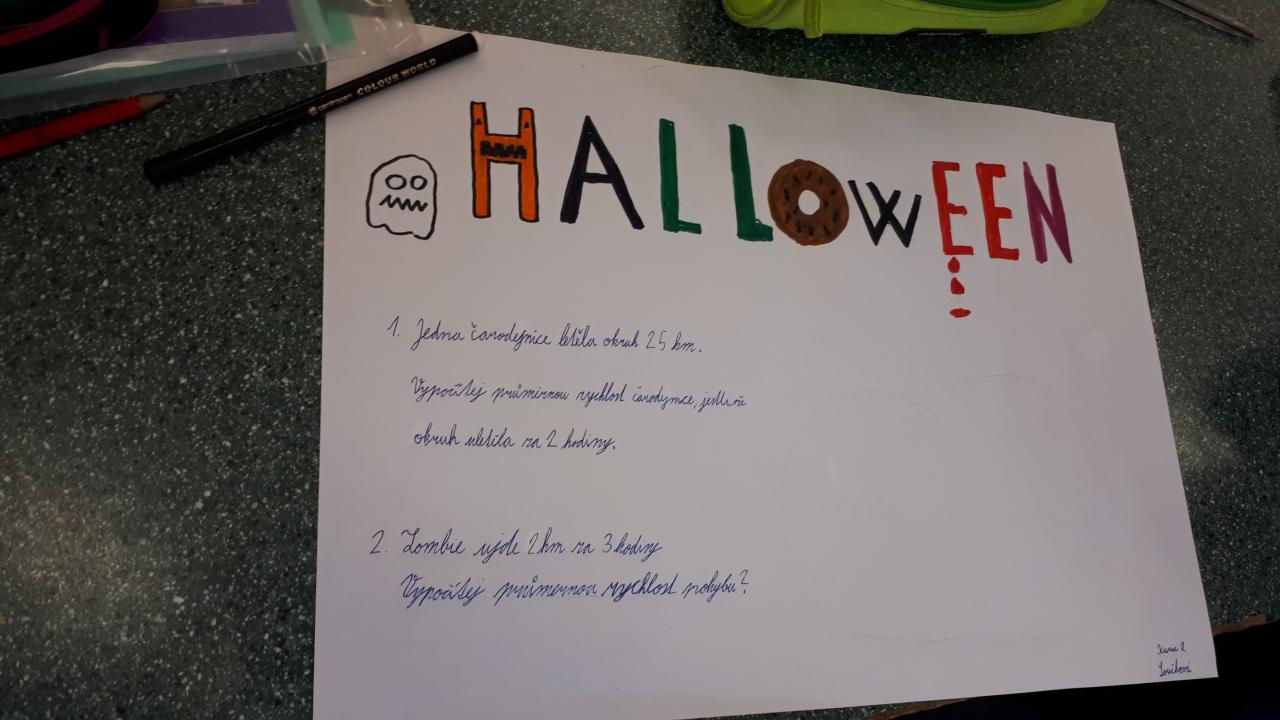 centropen COLOUR WORLD
HALLOWEEN
1. Jedna čarodejnice letěla okruh 25 km.
Vypočítej průměrnou rychlost čarodejnice, jestliže
okruh uletěla za 2 hodiny.
2. Zombie ujde 2 km za 3 hodiny
Vypočítej průmernou rychlost pohybu?